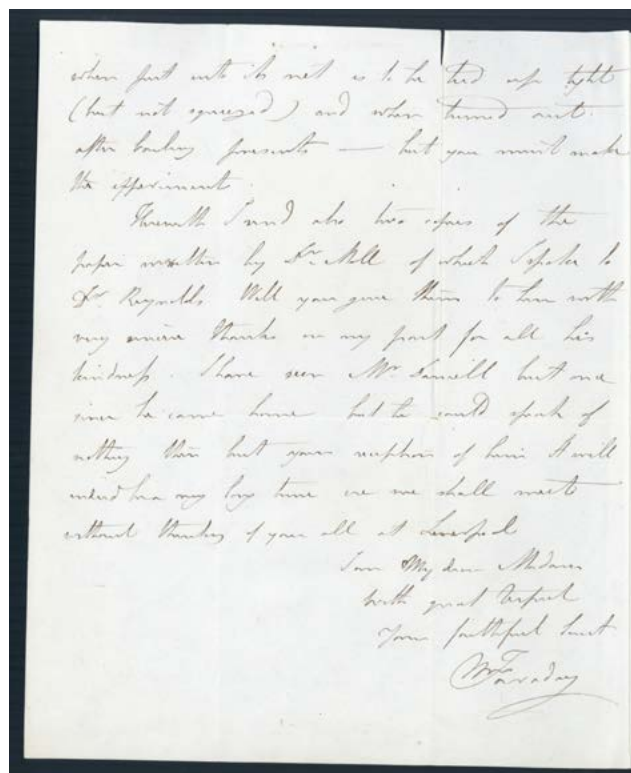 when put into its net is to be tied up tight
(but not squeezed) and when turned out
after boiling presents — but you must make
the experiment.
Herewith I send also two copies of the
paper written by Dr. Mill of which I spoke to
Dr. Reynolds. Will you give them to him with
very sincere thanks on my part for all his
kindness. I have seen Mr. Daniell but once
since he came home but he could speak of
nothing then but your reception of him. It will
indeed be a very long time ere we shall meet
without thinking of you all at Liverpool
I am My dear Madam
with great respect
Your faithful Servt
M Faraday